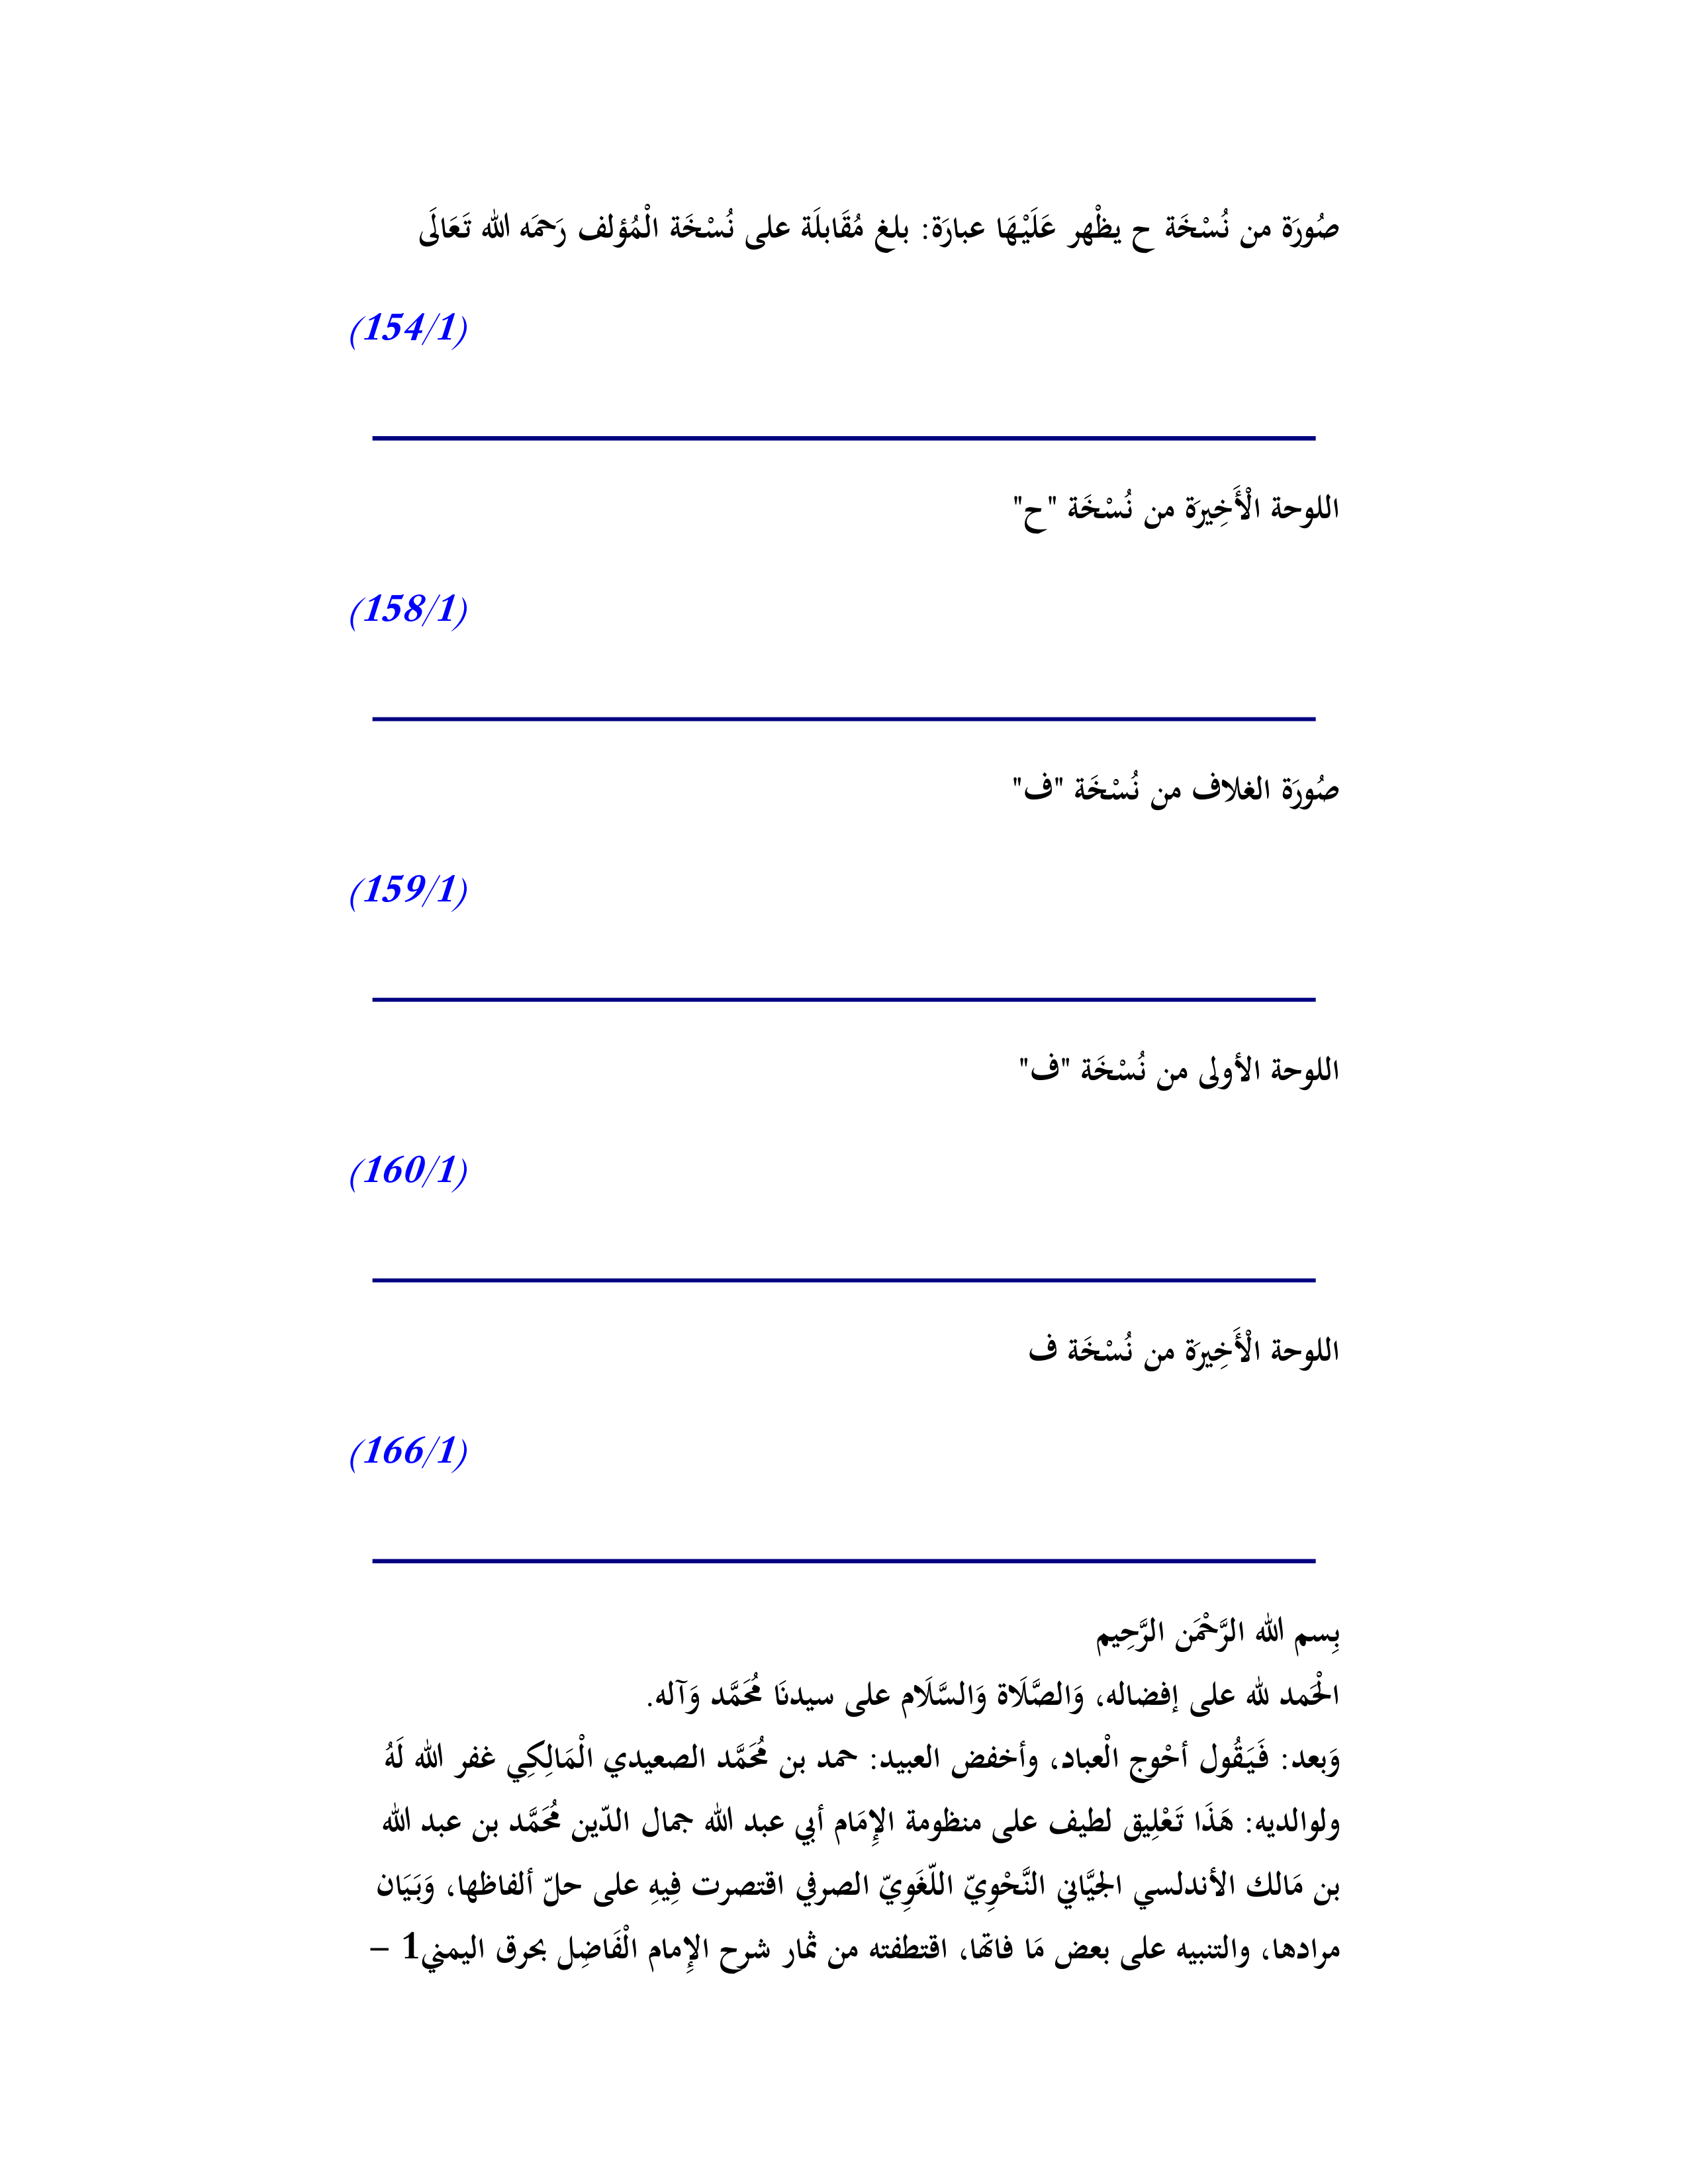 صُورَة من نُسْخَة ح يظْهر عَلَيْهَا عبارَة: بلغ مُقَابلَة على نُسْخَة الْمُؤلف رَحمَه الله تَعَالَى
(154/1)
اللوحة الْأَخِيرَة من نُسْخَة "ح"
(158/1)
صُورَة الغلاف من نُسْخَة "ف"
(159/1)
اللوحة الأولى من نُسْخَة "ف"
(160/1)
اللوحة الْأَخِيرَة من نُسْخَة ف
(166/1)
بِسم الله الرَّحْمَن الرَّحِيم
الْحَمد لله على إفضاله، وَالصَّلَاة وَالسَّلَام على سيدنَا مُحَمَّد وَآله.
وَبعد: فَيَقُول أحْوج الْعباد، وأخفض العبيد: حمد بن مُحَمَّد الصعيدي الْمَالِكِي غفر الله لَهُ
ولوالديه: هَذَا تَعْلِيق لطيف على منظومة الإِمَام أبي عبد الله جمال الدّين مُحَمَّد بن عبد الله
بن مَالك الأندلسي الجيَّاني النَّحْوِيّ اللّغَوِيّ الصرفي اقتصرت فِيهِ على حلّ ألفاظها، وَبَيَان
مرادها، والتنبيه على بعض مَا فاتها، اقتطفته من ثمار شرح الإِمام الْفَاضِل بحرق اليمني1 –